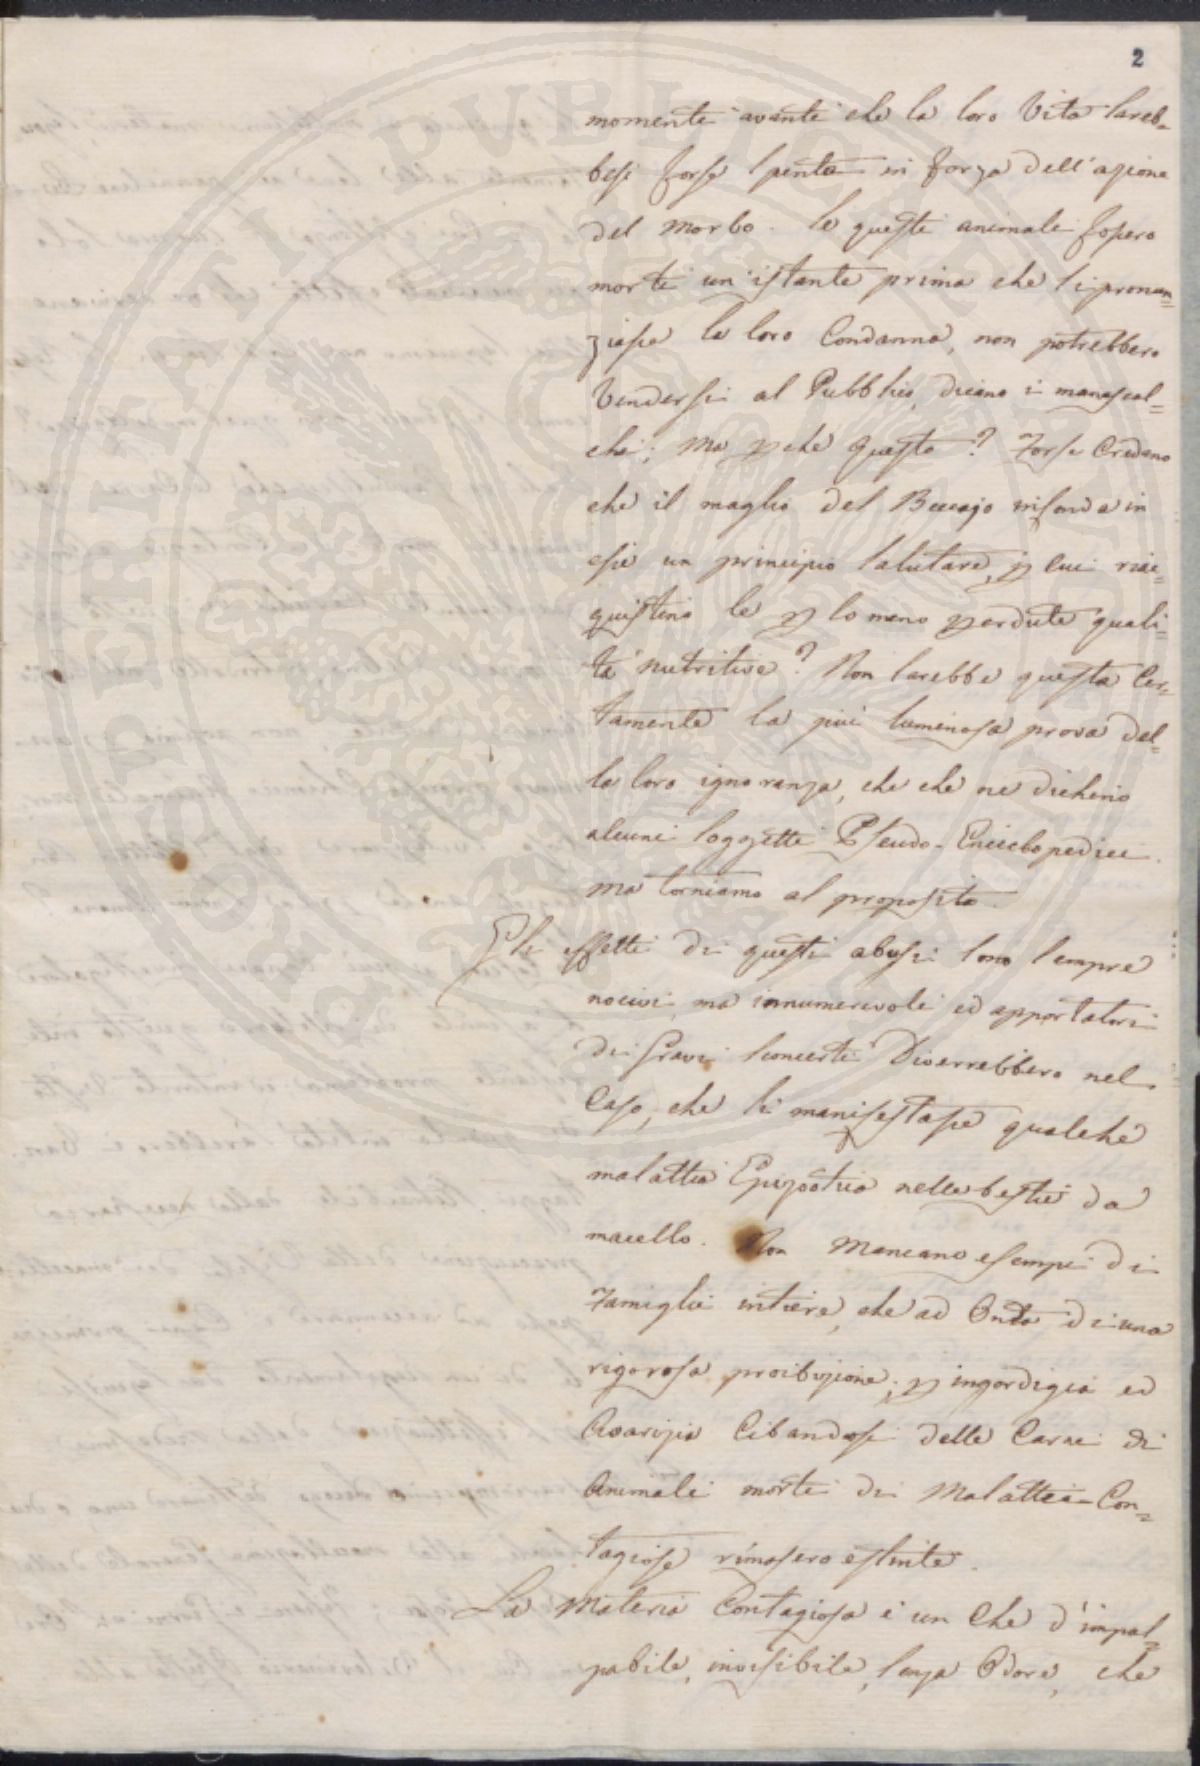 2
momenti avanti che la loro Vita sareb=
besi forse spenta in forza dell'azione
del Morbo. Se questi animali fossero
morti un'istante prima che si pronun=
ziasse la loro Condanna, non potrebbero
Vendersi al Pubblico, dicano i manescal=
chi; Ma pche questo? Forse Credono
che il maglio del Beccajo infonda in
essi un principio salutare, p cui riac=
quistino le p lo meno perdute quali=
tà nutritive? Non sarebbe questa Cer=
tamente la più luminosa prova del=
la loro ignoranza, che che ne dicheno
alcuni soggetti Pseudo-Enciclopedici.
Ma torniamo al proposito.
Gli effetti di questi abusi sono sempre
nocivi, ma innumerevoli ed apportatori
di gravi sconcerti Diverrebbero nel
Caso, che si manifestasse qualche
malattia Epizootica nelle bestie da
macello. Non Mancano esempi di
Famiglie intiere, che ad Onta di una
rigorosa proibizione, p ingordigia ed
Avarizia Cibandosi delle Carni di
Animali morti di Malattie Con=
tagiose rimasero estinte.
La Materia Contagiosa è un Che d'impal=
pabile, invisibile, senza Odore, che
PROSPERITATI PVBLICAE